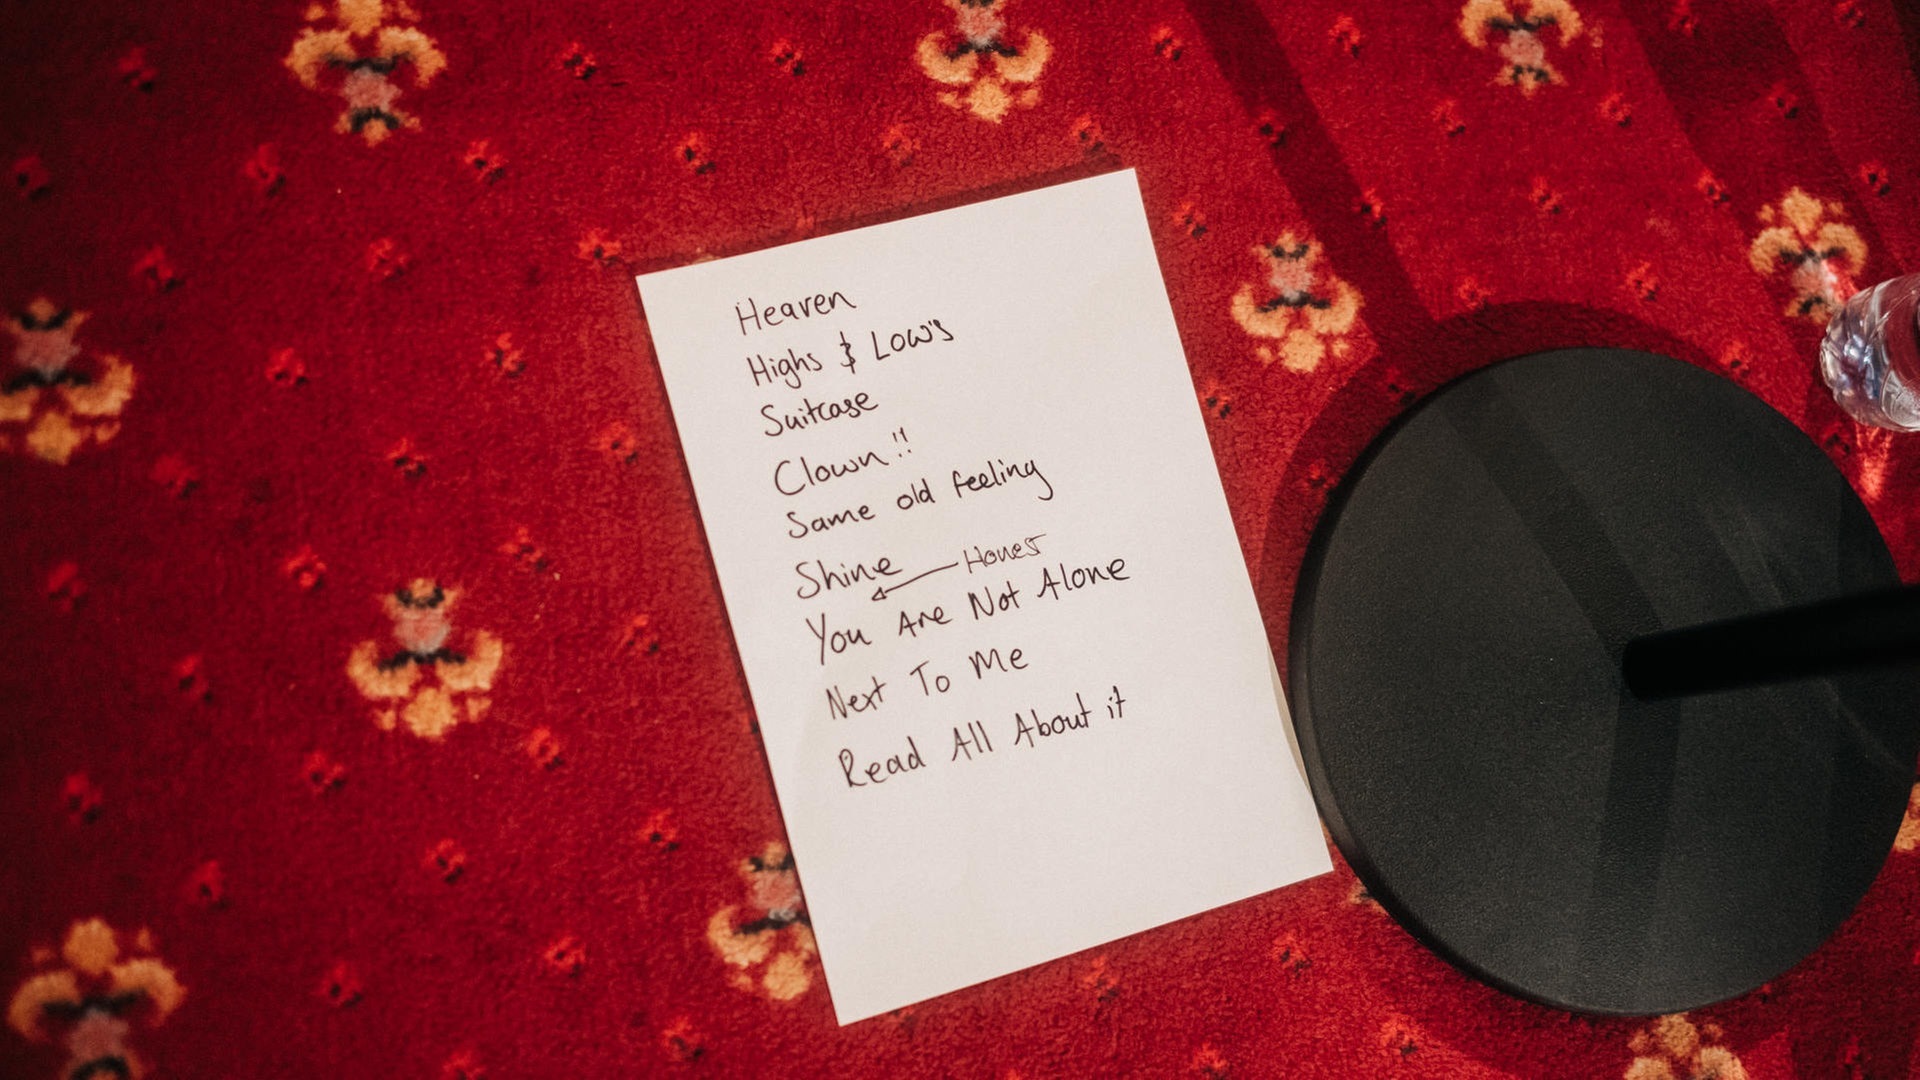 Heaven
Highs & Low's
Suitcase
Clown!!
Same old feeling
Shine
Honest
You Are Not Alone
Next To Me
Read All About it